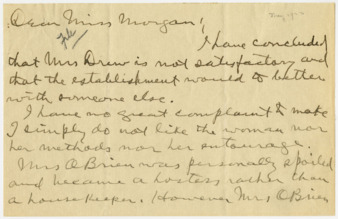 Dear Miss Morgan;
I have concluded
that Mrs Drew is not satisfactory and
that the establishment would do better
with someone else.
I have no great complaint to make
I simply do not like the woman nor
her methods nor her entourage.
Mrs O'Brien was personally spoiled
and became a hostess rather than
a housekeeper. However Mrs O'Brien